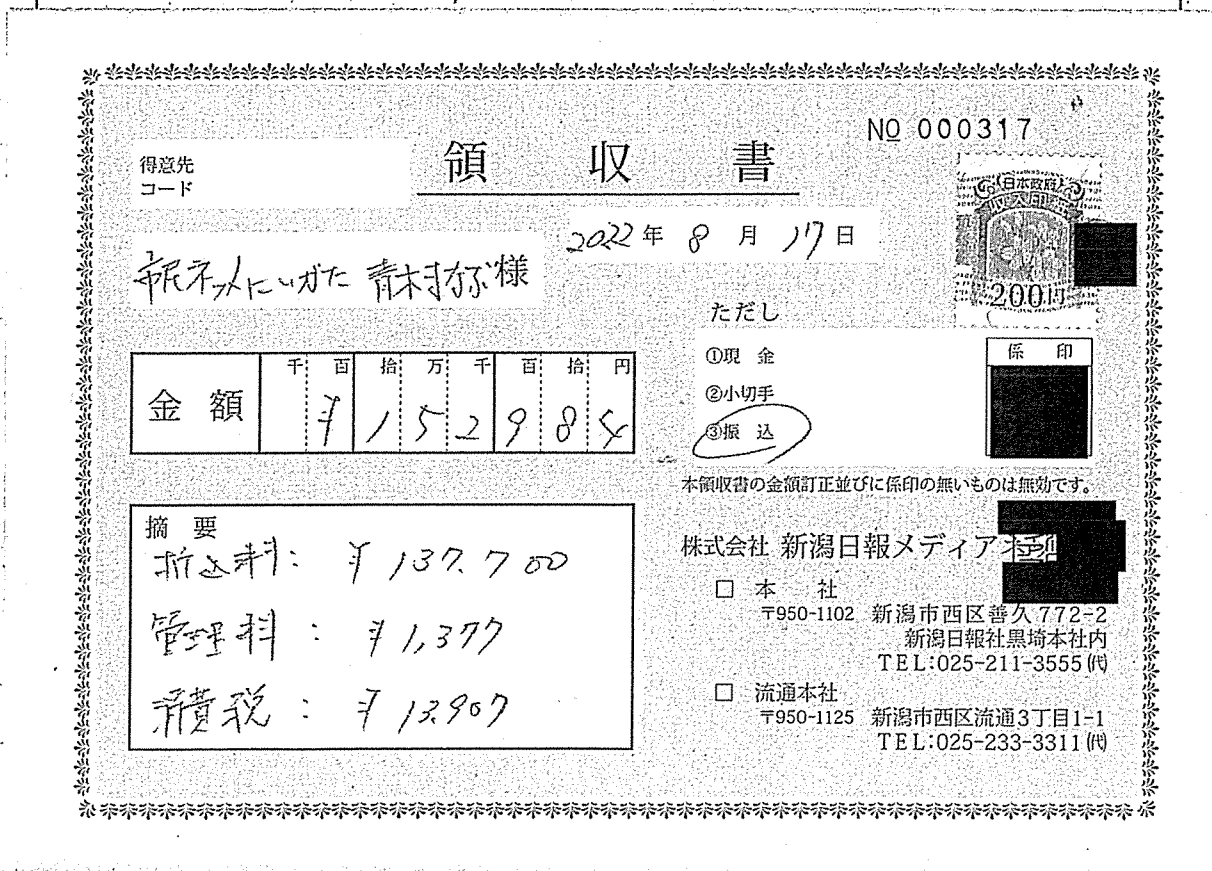 NO 000317
領収書
得意先
コード
2022年 8月 17日
市民ネットにいがた 青木まなぶ様
日本政府
収入印紙
200円
ただし
①現 金
②小切手
③振 込
係 印
金 額
千 百 拾 万 千 百 拾 円
¥ 1 5 2 9 8 4
本領収書の金額訂正並びに係印の無いものは無効です。
摘 要
折込料: ¥137,700
管理料: ¥1,377
消費税: ¥13,907
株式会社 新潟日報メディアネット
□ 本 社
〒950-1102 新潟市西区善久772-2
新潟日報社黒埼本社内
TEL:025-211-3555㈹
□ 流通本社
〒950-1125 新潟市西区流通3丁目1-1
TEL:025-233-3311㈹